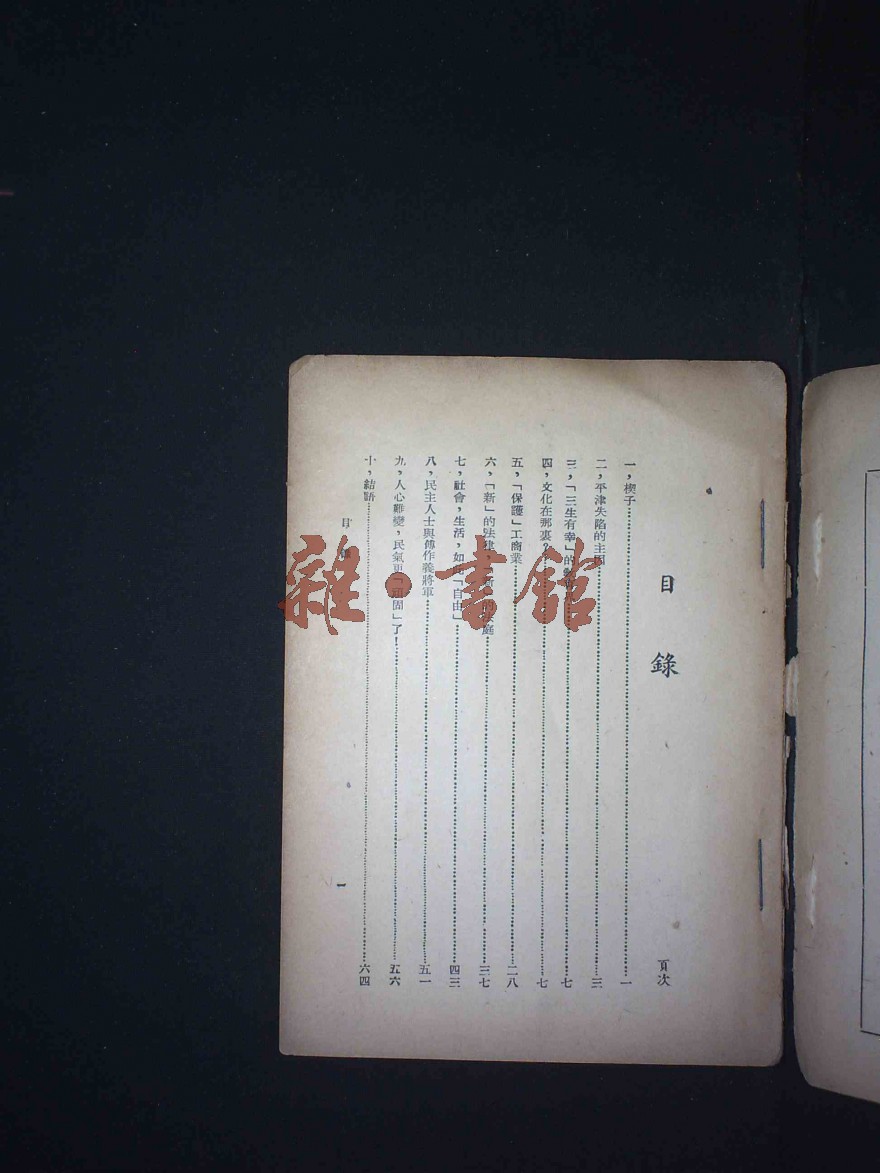 目錄
頁次
一，楔子……一
二，平津失陷的主因……三
三，「三生有幸」的……七
四，文化在那裏？……七
五，「保護」工商業……二八
六，「新」的法律，「新」的家庭……三七
七，社會，生活，如此「自由」……四三
八，民主人士與傅作義將軍……五一
九，人心難變，民氣更「頑固」了！……五六
十，結語……六四
目錄
一
雜·書館